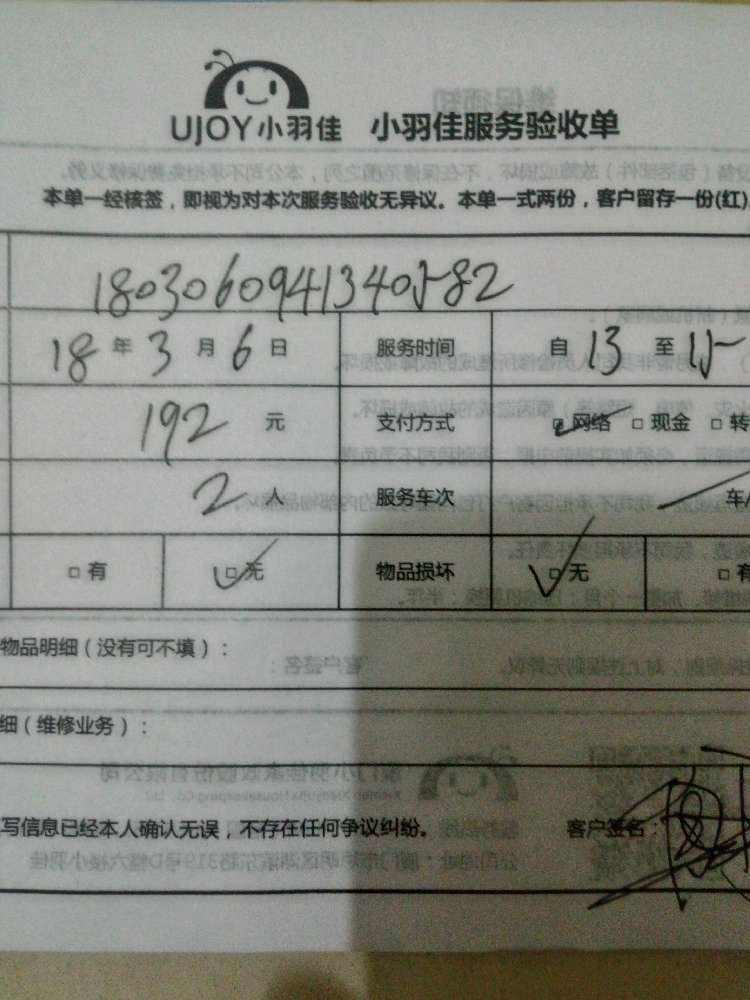 UJOY小羽佳 小羽佳服务验收单
本单一经核签，即视为对本次服务验收无异议。本单一式两份，客户留存一份(红)
1803060941340582
18 年 3 月 6 日 服务时间 自 13 至 15
192 元 支付方式 网络 现金 转
2 人 服务车次 车/
有 无 物品损坏 无 有
物品明细（没有可不填）：
细（维修业务）：
写信息已经本人确认无误，不存在任何争议纠纷。 客户签名：